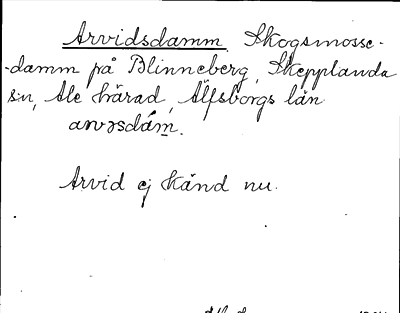 Arvidsdamm, Skogsmosse-
-damm på Blinneberg, Skepplanda
sn, Ale härad, Älfsborgs län
arvəsdám.
Arvid ej känd nu.